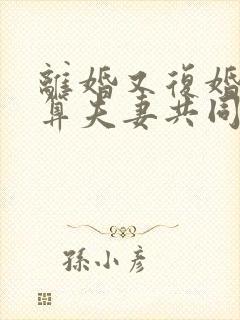 離婚又復婚
算夫妻共同
孫小彥